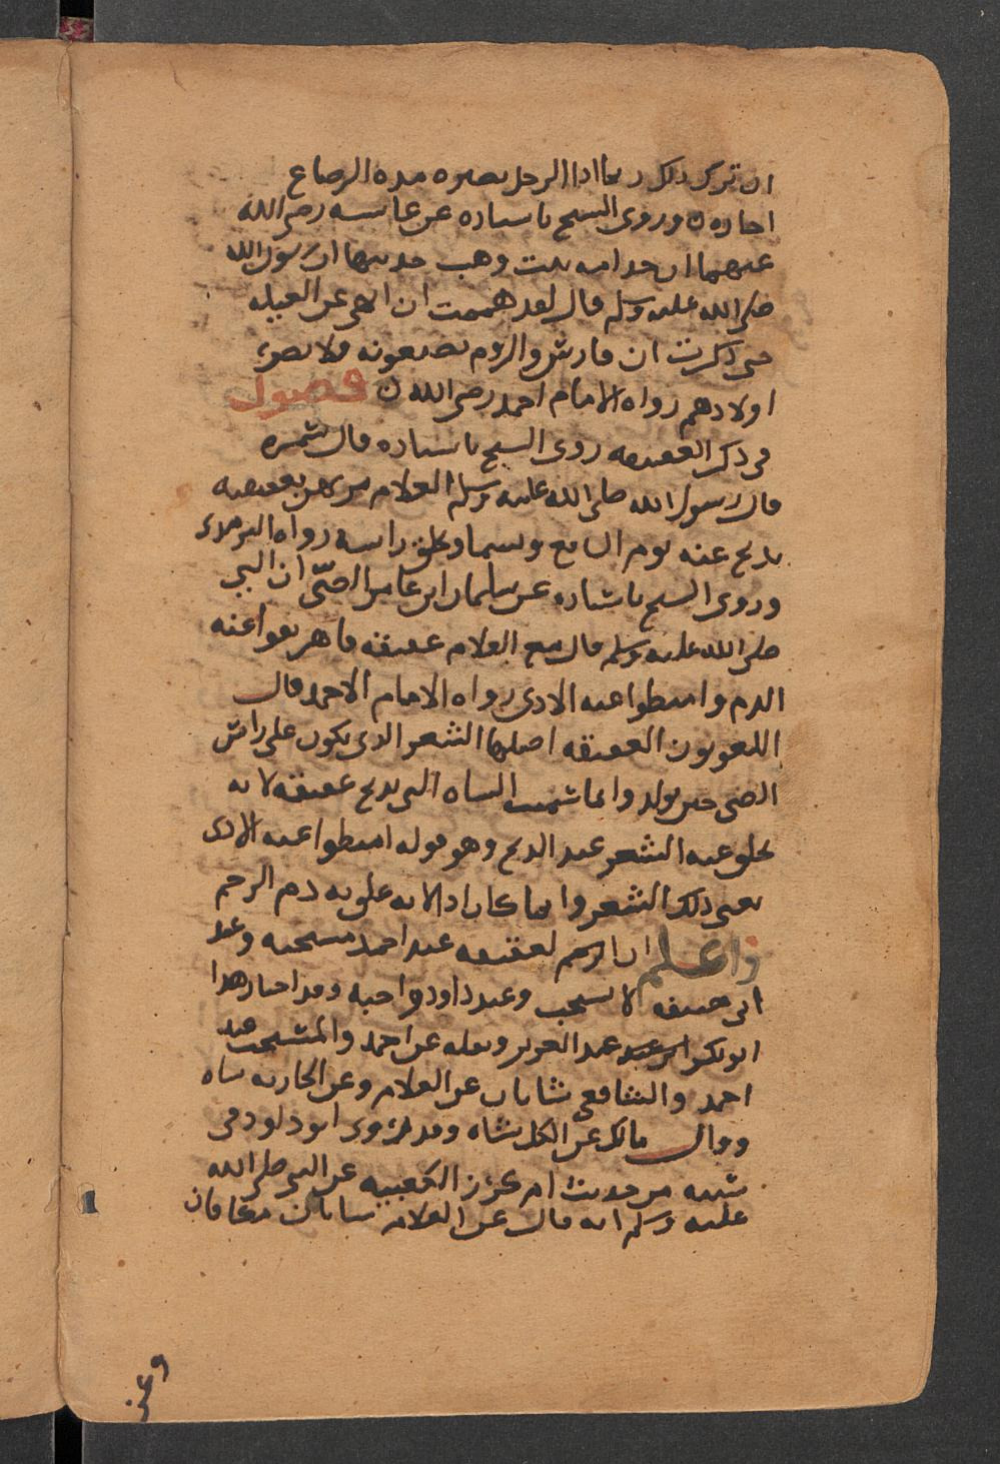 ان تترك ذلك ربما اذا الرجل بصره مده الرضاع
احاره ن وروى الشيخ باسناده عن عائشه رضي الله
عنهما ان جدامه بنت وهب حدثتها ان رسول الله
صلى الله عليه وسلم قال لقد هممت ان انهى عن الغيله
حتى ذكرت ان فارس والروم يصنعونه فلا يضر
اولادهم رواه الامام احمد رضي الله ن فصول
في ذكر العقيقه روى الشيخ باسناده قال سمره
قال رسول الله صلى الله عليه وسلم الغلام مرتهن بعقيقته
يذبح عنه يوم السابع ويسما ويحلق راسه رواه الترمذي
وروى الشيخ باسناده عن سلمان ابن عامر الضبّي ان النبي
صلى الله عليه وسلم قال مع الغلام عقيقه فاهريقوا عنه
الدم واميطوا عنه الاذى رواه الامام الاحمد قال
اللغويون العقيقه اصلها الشعر الذي يكون على راس
الصبي حين يولد وانما سميت الشاه التي تذبح عقيقه لانه
يحلق عنه الشعر عند الذبح وهو قوله اميطوا عنه الاذى
يعني ذلك الشعر وانما كان اذا لانه علق به دم الرحم
واعلم ان الرسم لعقيقه عند احمد مستحبه وعند
ابي حنيفه لا تستحب وعند داود واجبه وقد اختار هذا
ابو بكر ابن عبد عبد العزيز ونقله عن احمد والمستحب عند
احمد والشافعي شاتان عن الغلام وعن الجاريه شاه
وقال مالك عن الكل بشاه وقد روى ابو داود في
سننه من حديث ام كرز الكعبيه عن النبي صلى الله
عليه وسلم انه قال عن الغلام شاتان مكافان
وعن